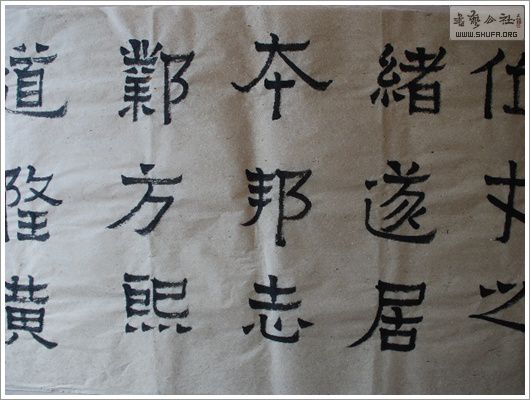 书艺公社
WWW.SHUFA.ORG
之
緒遂居
本邦志
方熙
道隆黄